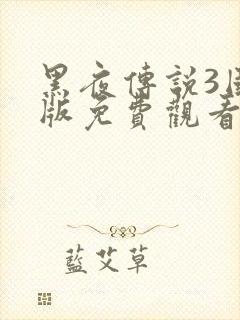 黑夜傳説3
版免費觀看
藍艾草